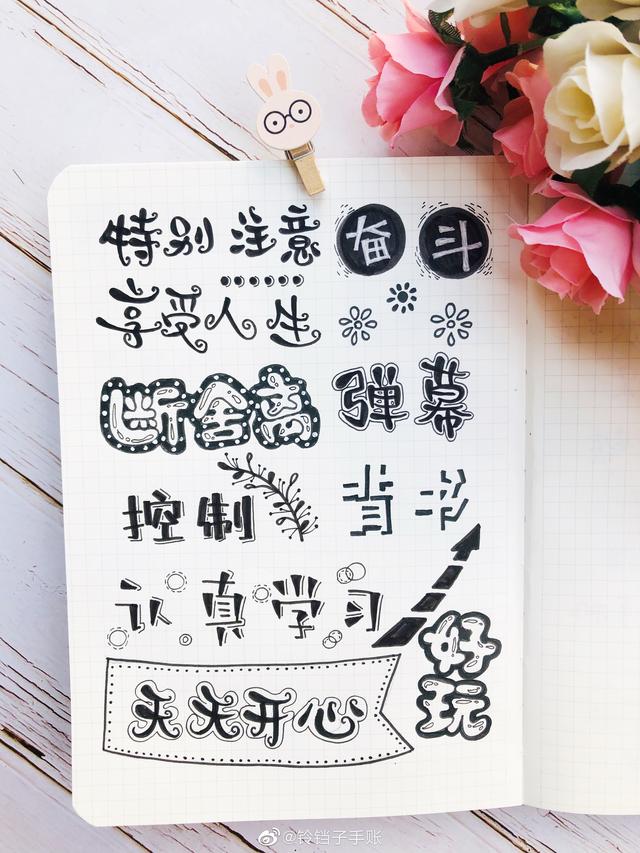 特别 注意 奋斗
享受人生
断舍离 弹幕
控制 背书
认真学习
好玩
天天开心
@铃铛子手账